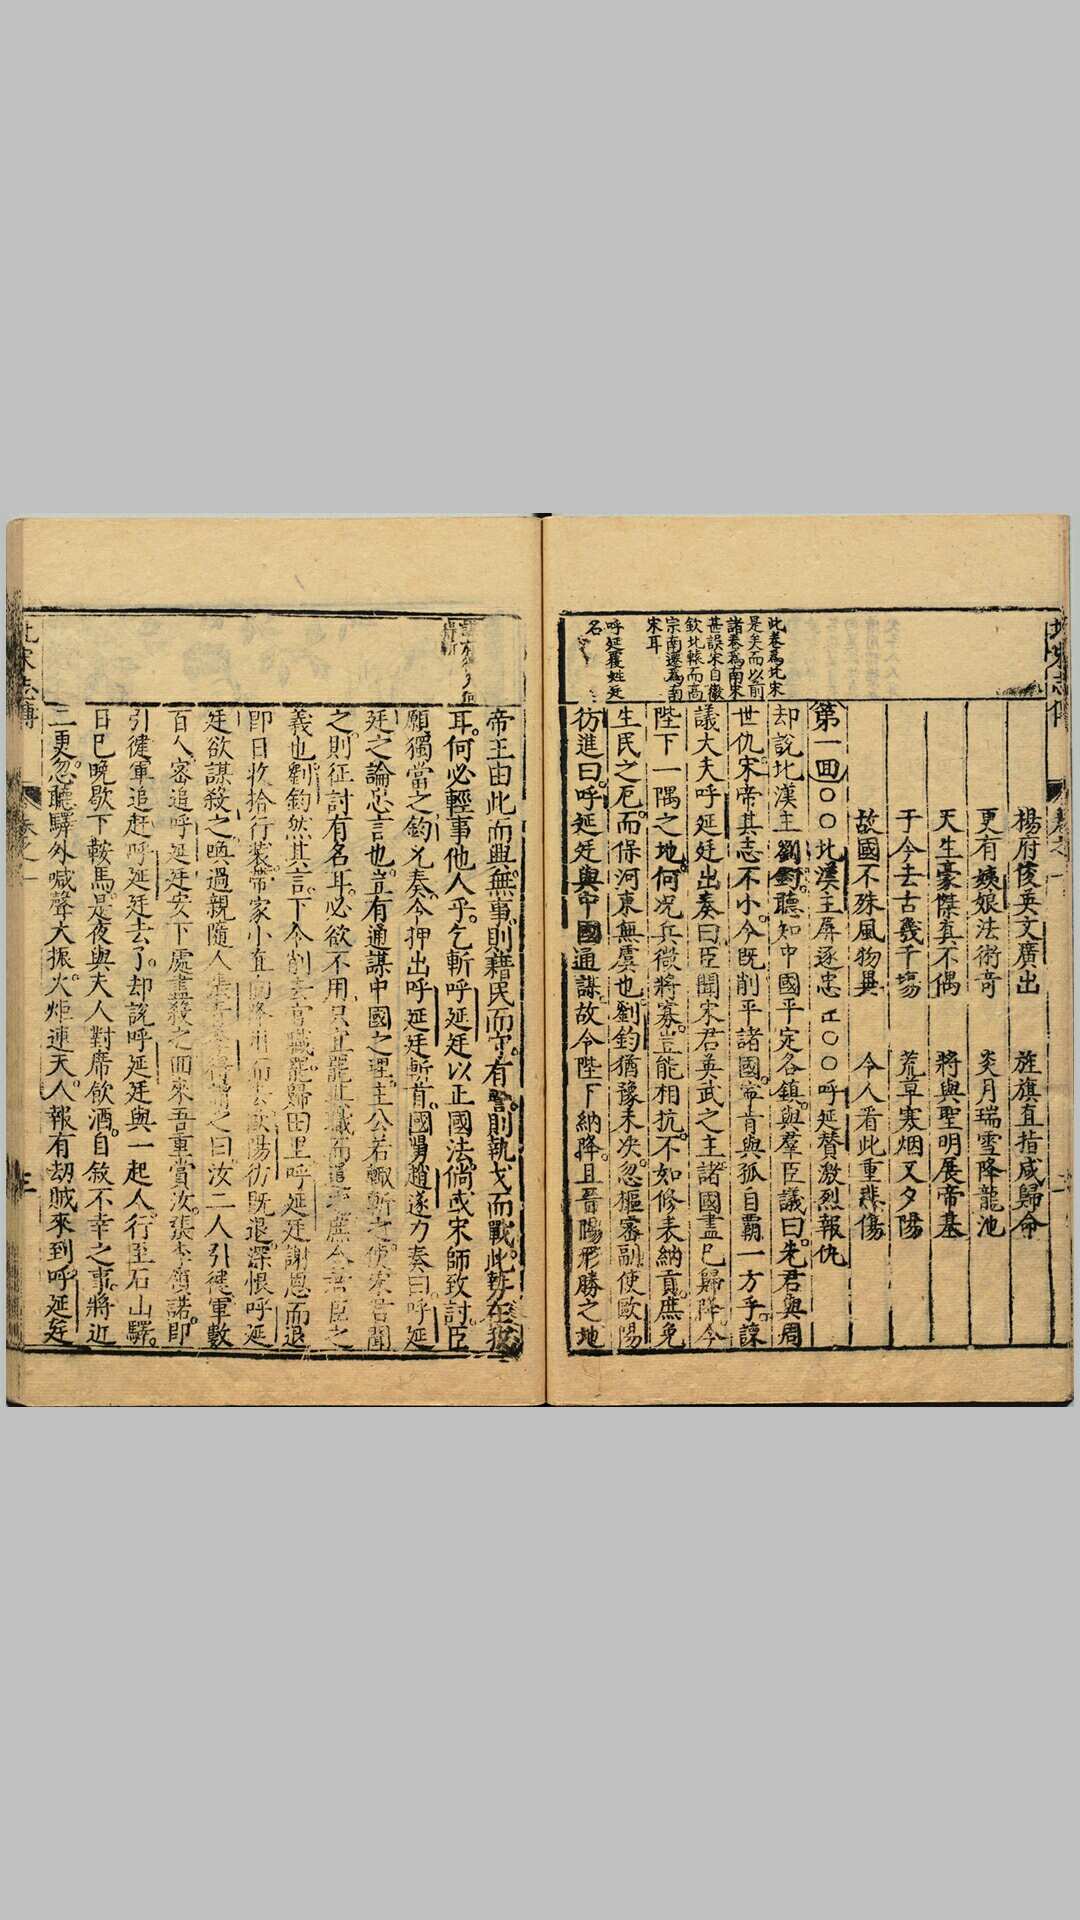 楊府俊英文廣出　旌旗直指咸歸命
更有姨娘法術奇　炎月瑞雪降龍池
天生豪傑真不偶　將與聖明展帝基
于今去古幾千塲　荒草寒烟又夕陽
故國不殊風物異　今人看此重悲傷
第一回○○北漢主屏逐忠臣○○呼延贊激烈報仇
此卷爲北宋
是矣而以前
諸卷爲南宋
甚誤宋自徽
欽北轅而高
宗南遷爲南
宋耳
呼延覆姓廷
名
却說北漢主劉鈞聽知中國平定各鎮與羣臣議曰先君與周
世仇宋帝其志不小今既削平諸國寧肯與孤自霸一方乎諫
議大夫呼延廷出奏曰臣聞宋君英武之主諸國盡已歸降今
陛下一隅之地何况兵微將寡豈能相抗不如修表納貢庶免
生民之厄而保河東無虞也劉鈞猶豫未决忽樞密副使歐陽
彷進曰呼延廷與中國通謀故今陛下納降且晋陽形勝之地
帝王由此而興無事則籍民而守有警則執戈而戰此勢在我
耳何必輕事他人乎乞斬呼延廷以正國法倘或宋師致討臣
願獨當之鈞允奏令押出呼延廷斬首國舅趙遂力奏曰呼延
廷之論忠言也豈有通謀中國之理主公若輙斬之使宋君聞
之則征討有名耳必欲不用只宜罷其職而遣之庶全君臣之
義也劉鈞然其言下令削去官職罷歸田里呼延廷謝恩而退
即日收拾行裝帶家小直向絳州而去歐陽彷既退深恨呼延
廷欲謀殺之喚過親隨人張青李得謂之曰汝二人引健軍數
百人密追呼延廷安下處盡殺之回來吾重賞汝張李領諾即
引健軍追赶呼延廷去了却說呼延廷與一起人行至石山驛
日已晚歇下鞍馬是夜與夫人對席飲酒自敘不幸之事將近
二更忽聽驛外喊聲大振火炬連天人報有刼賊來到呼延廷
北宋志傳　卷之一　三